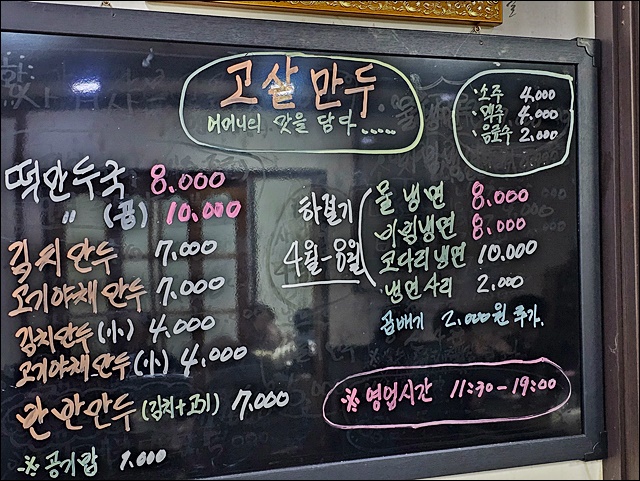 고살만두
어머니의 맛을 담다.....
·소주 4.000
·맥주 4.000
·음료수 2.000
떡만두국 8.000
〃 (곱) 10.000
김치만두 7.000
고기야채만두 7.000
김치만두(小) 4.000
고기야채만두(小) 4.000
반반만두(김치+고기) 7.000
※ 공기밥 1.000
하절기
4월-8월
물냉면 8.000
비빔냉면 8.000
코다리냉면 10.000
·냉면사리 2.000
곱배기 2.000원 추가.
※ 영업시간 11:30-19:00